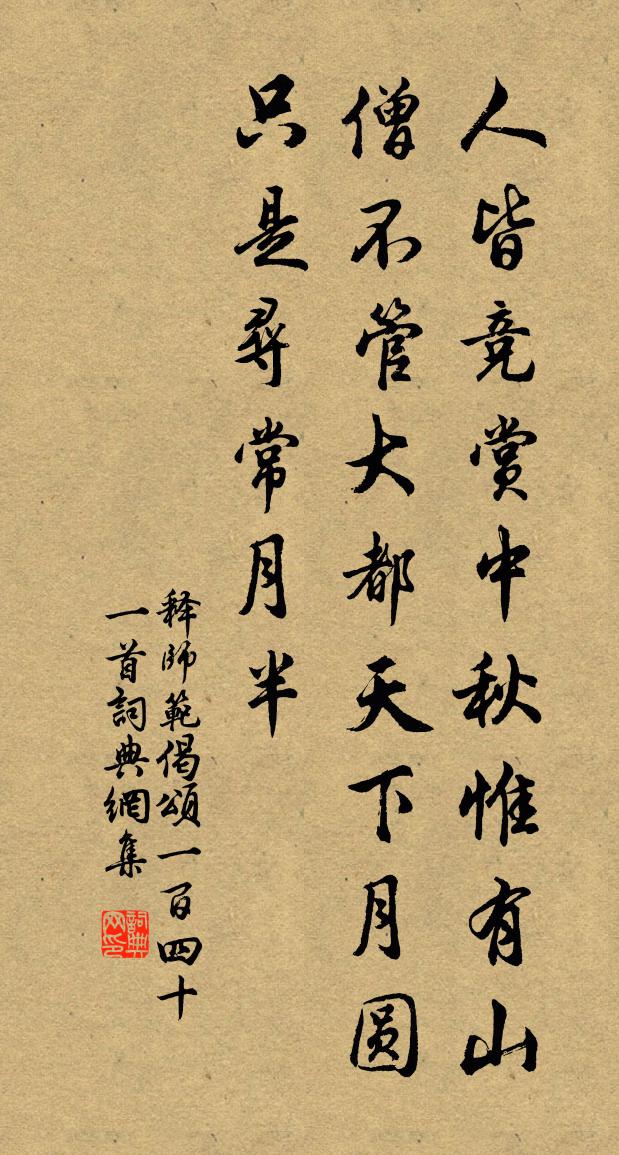 人皆竞赏中秋惟有山
僧不管大都天下月圆
只是尋常月半
释師範偈頌一百四十
一首詞典網集
詞典
网印